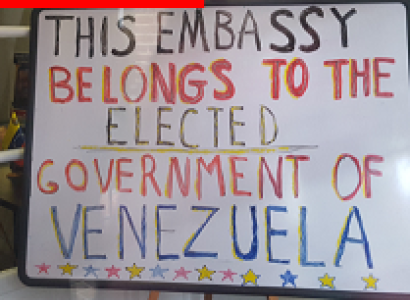 THIS EMBASSY
BELONGS TO THE
ELECTED
GOVERNMENT OF
VENEZUELA